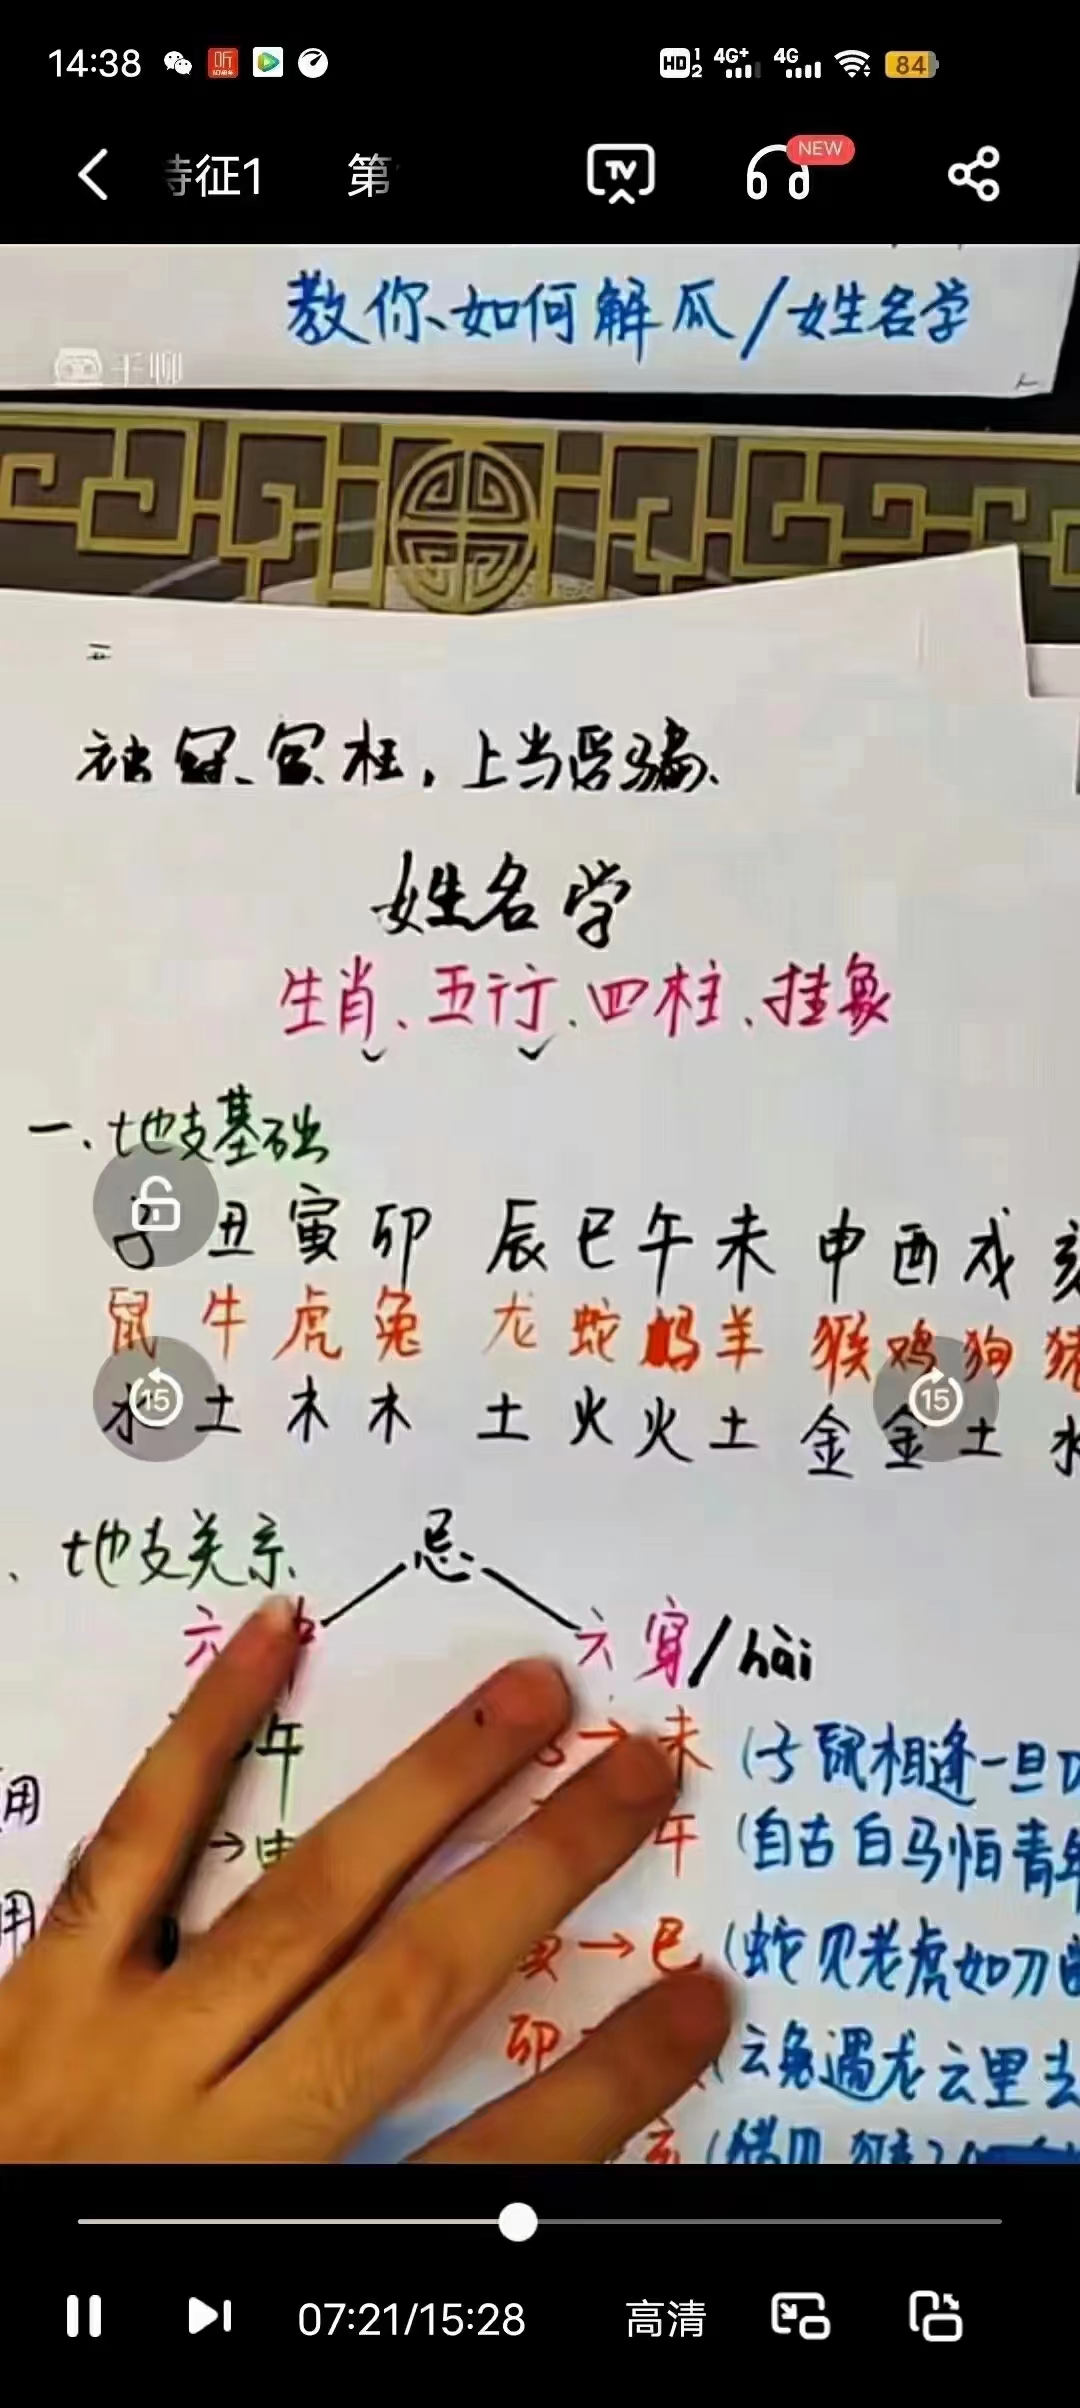 14:38 HD 1 2 4G+ 4G 84
特征1 第
TV NEW
教你如何解瓜/姓名学
千聊
上当受骗
姓名学
生肖、五行、四柱、挂象
一、地支基础
子 丑 寅 卯 辰 巳 午 未 申 酉 戌 亥
鼠 牛 虎 兔 龙 蛇 鸡 羊 猴 鸡 狗 猪
水 土 木 木 土 火 火 土 金 金 土 水
15 15
、地支关系 忌
六 六穿/hài
午 → 未 (子鼠相逢一旦
用 →申 午 (自古白马怕青牛
用 寅→巳 (蛇见老虎如刀
卯 (云兔遇龙云里去
亥 (猪见猴
07:21/15:28 高清